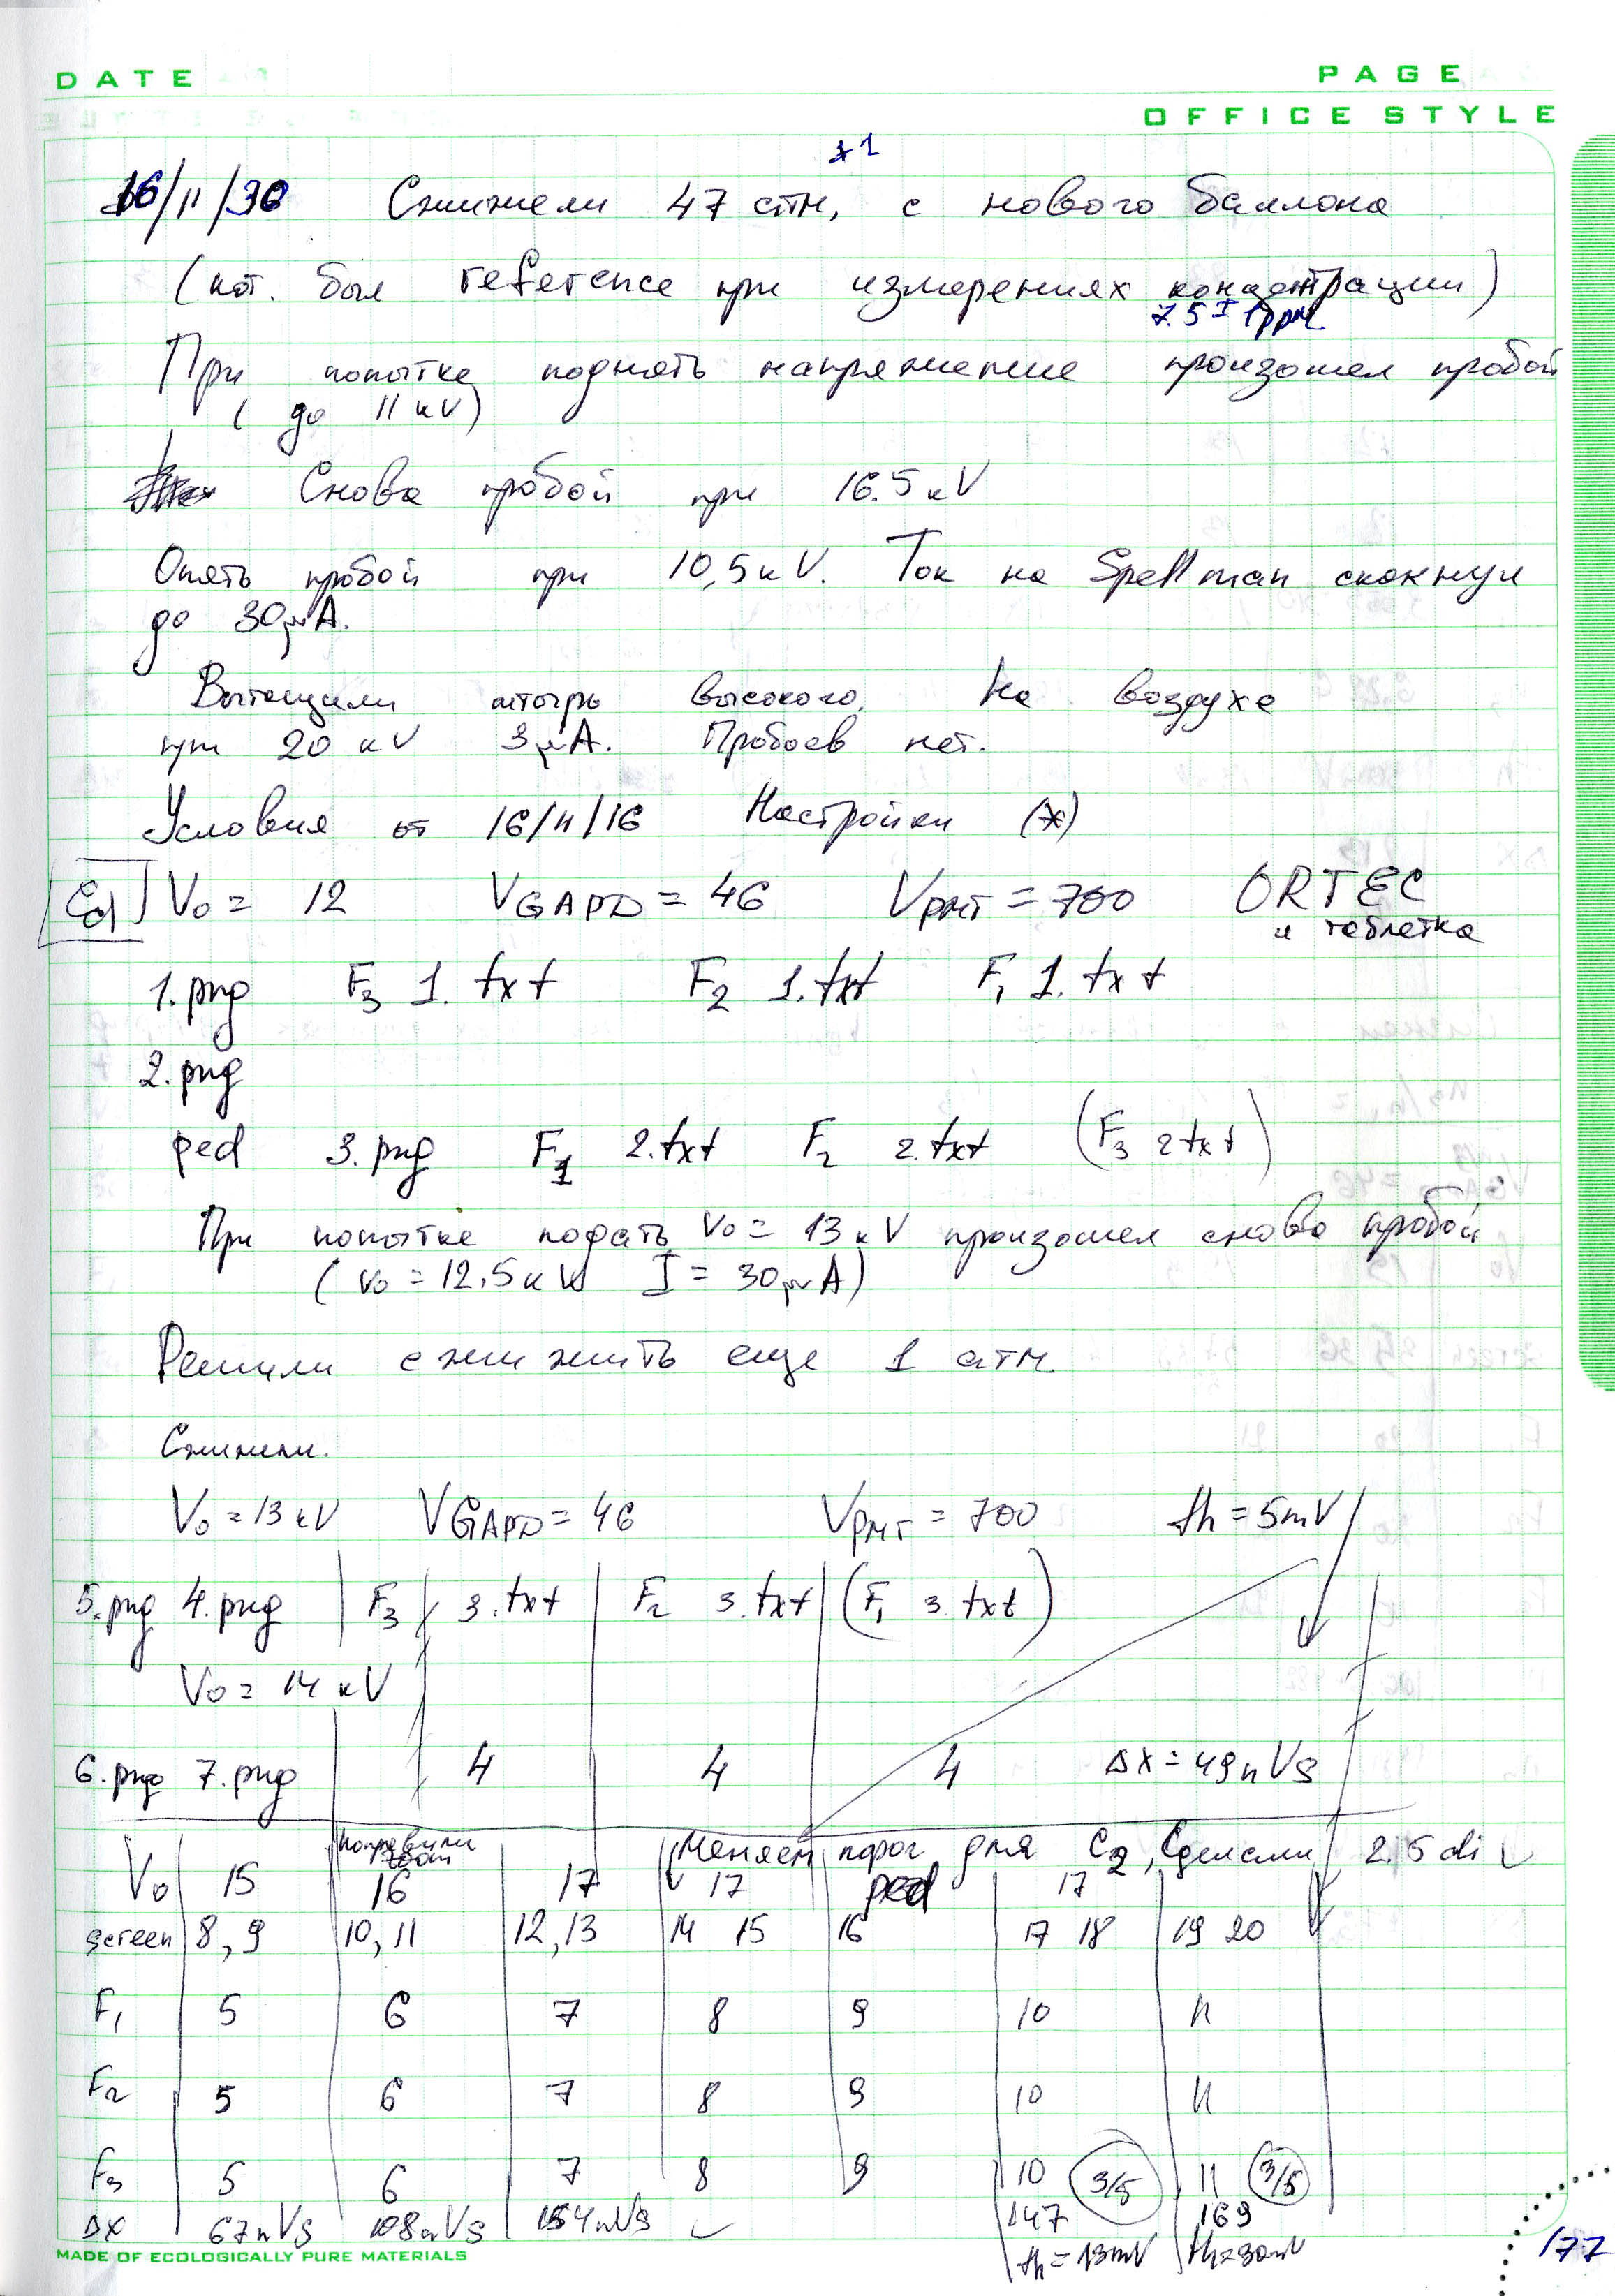 DATE
PAGE
OFFICE STYLE
+1
16/11/30 Сжижели 47 атм, с нового баллона
(кот. был reference при измерениях концентрации)
7.5 ± 1ppm
При попытке поднять напряжение произошел пробой
(до 11 kV)
Снова пробой при 16.5 kV
Опять пробой при 10,5 kV. Ток на Spellman скокнул
до 30μA.
Вытащили штырь высокого. На воздухе
при 20 kV 3μA. Пробоев нет.
Условия от 16/11/16 Настройки (*)
V0 = 12 VGAPD = 46 VPMT = 700 ORTEC
и таблетка
1.png F3 1.txt F2 1.txt F1 1.txt
2.png
ped 3.png F1 2.txt F2 2.txt (F3 2txt)
При попытке подать V0 = 13 kV произошел снова пробой
(V0 = 12.5 kV I = 30μA)
Решили сжижить еще 1 атм
Сжижели.
V0 = 13 kV VGAPD = 46 VPMT = 700 th = 5mV
5.png 4.png F3 3.txt F2 3.txt (F1 3.txt)
V0 = 14 kV
6.png 7.png 4 4 4 ΔX = 49nVs
Меняем порог для C2, Сделали 2.5 div
V0 15 16 17 17 ped 17
screen 8, 9 10, 11 12, 13 14 15 16 17 18 19 20
F1 5 6 7 8 9 10 11
F2 5 6 7 8 9 10 11
F3 5 6 7 8 9 10 3/5 11 3/5
ΔX 67nVs 108nVs 154nVs 147 169
th = 13mV th = 30mV
MADE OF ECOLOGICALLY PURE MATERIALS
177